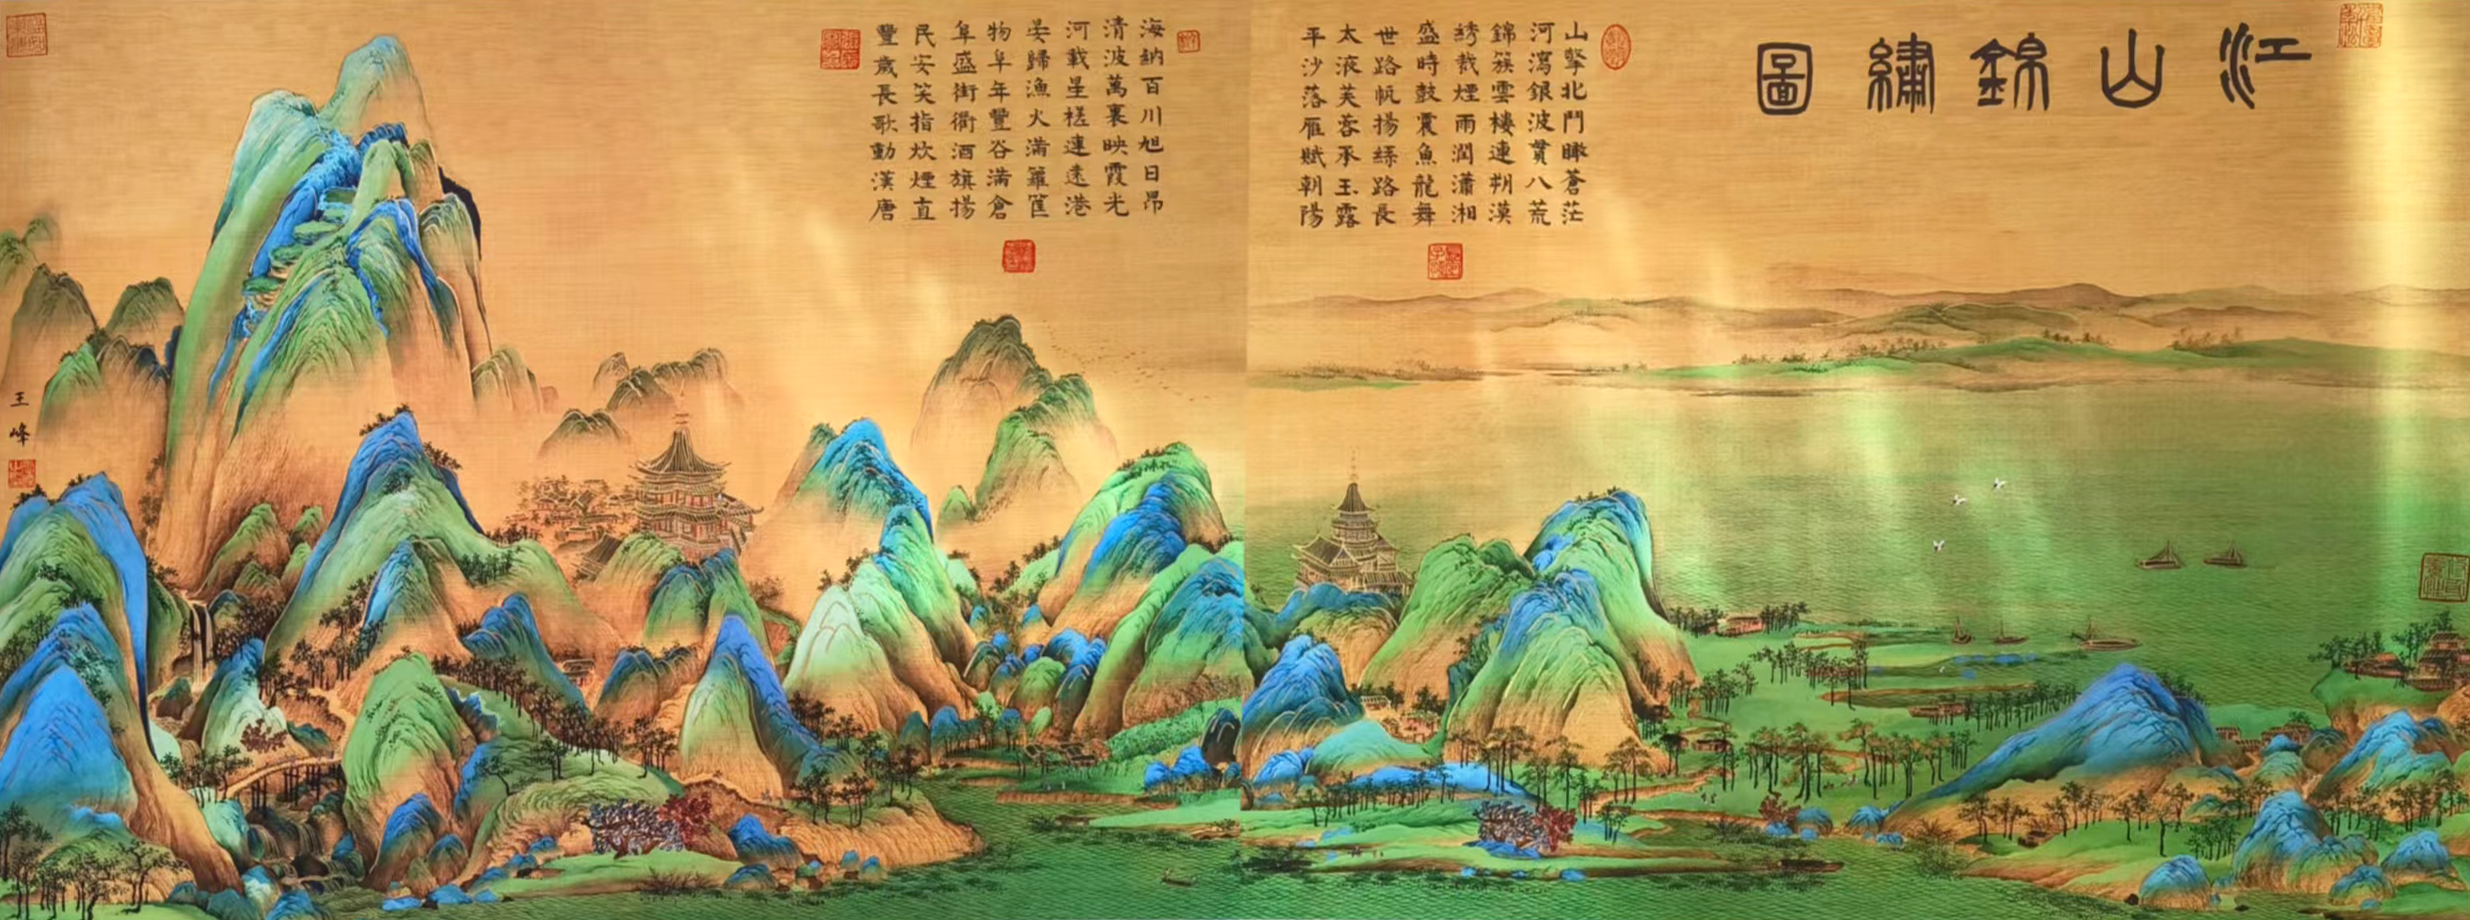 江山錦繡圖
山擎北鬥瞰蒼茫
河瀉銀波貫八荒
錦簇雲樓連朔漠
綉裁煙雨潤瀟湘
盛時鼓震魚龍舞
世路帆揚絲路長
太液芙蓉承玉露
平沙落雁賦朝陽
海納百川旭日昂
清波萬裏映霞光
河載星槎連遠港
晏歸漁火滿籮筐
物阜年豐谷滿倉
阜盛街衢酒旗揚
民安笑指炊煙直
豐歲長歌動漢唐
王峰